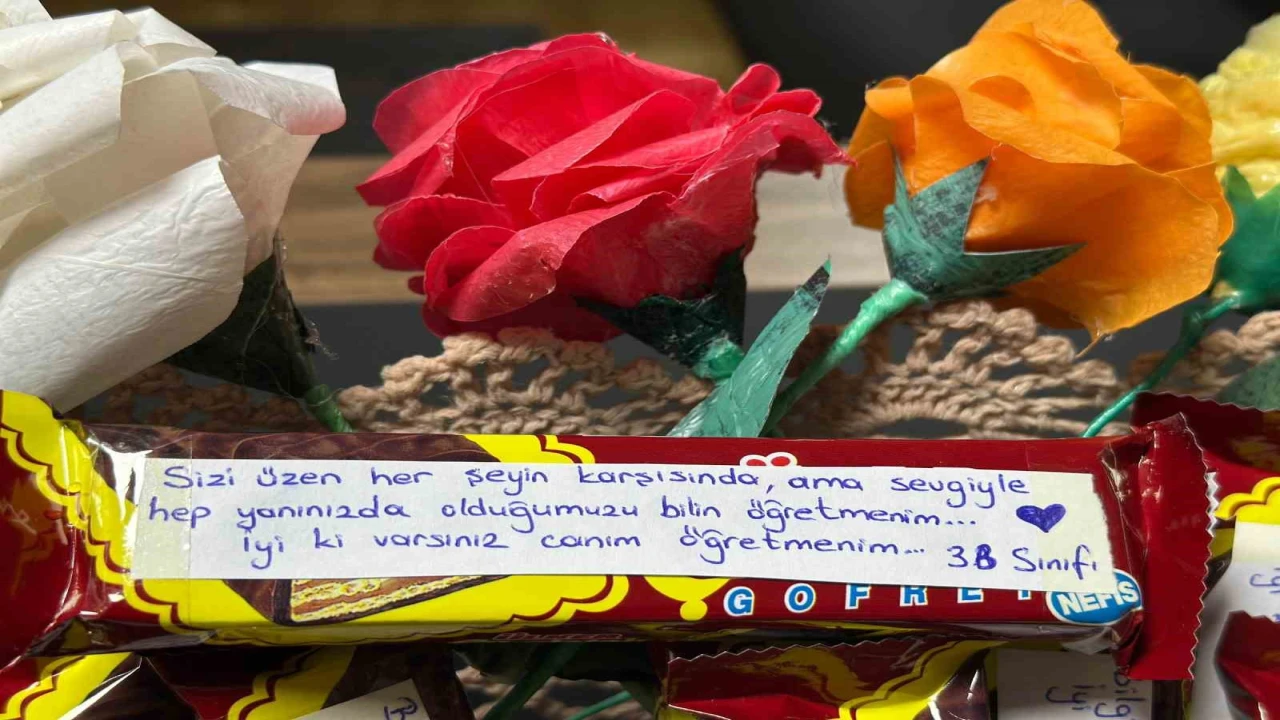 Sizi üzen her şeyin karşısında, ama sevgiyle
hep yanınızda olduğumuzu bilin öğretmenim...
iyi ki varsınız canım öğretmenim... 3B Sınıfı
GOFRET
NEFİS